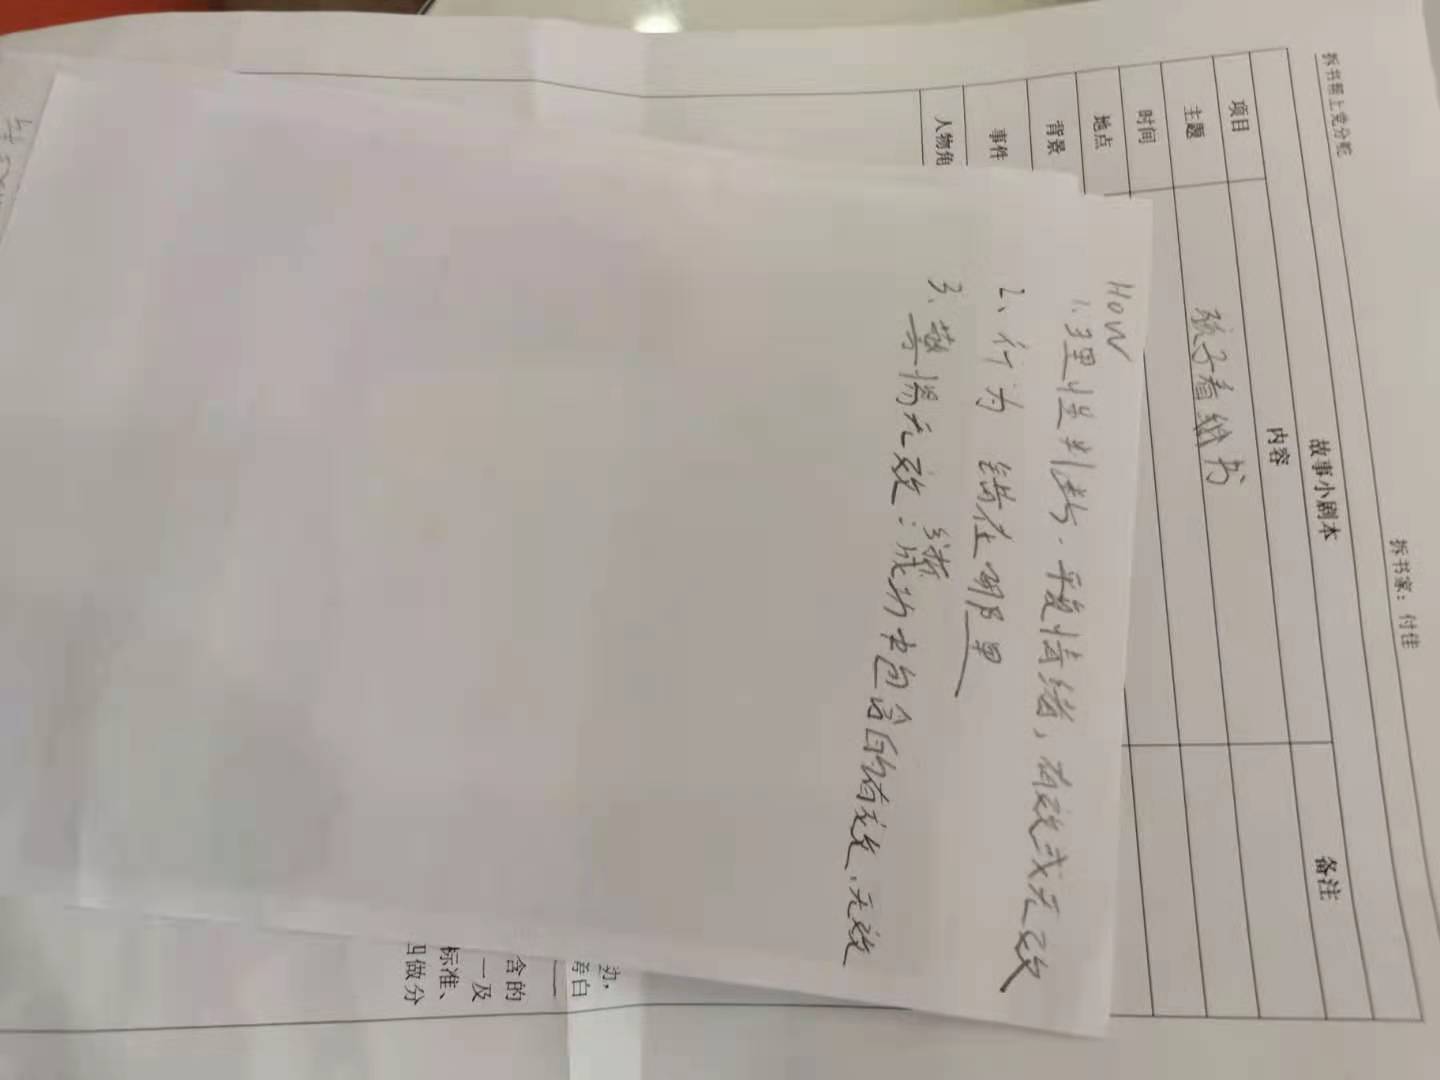 拆书帮上党分舵
拆书家：付佳
故事小剧本
项目 内容 备注
主题 孩子看课外书
时间
地点
背景
事件
人物角
HOW
1、理性判断．平复情绪，有效或无效
2、行为 错在哪里
3、警惕无效：分析成功中包含的有效、无效
旁白
含的
一及
标准、
四做分